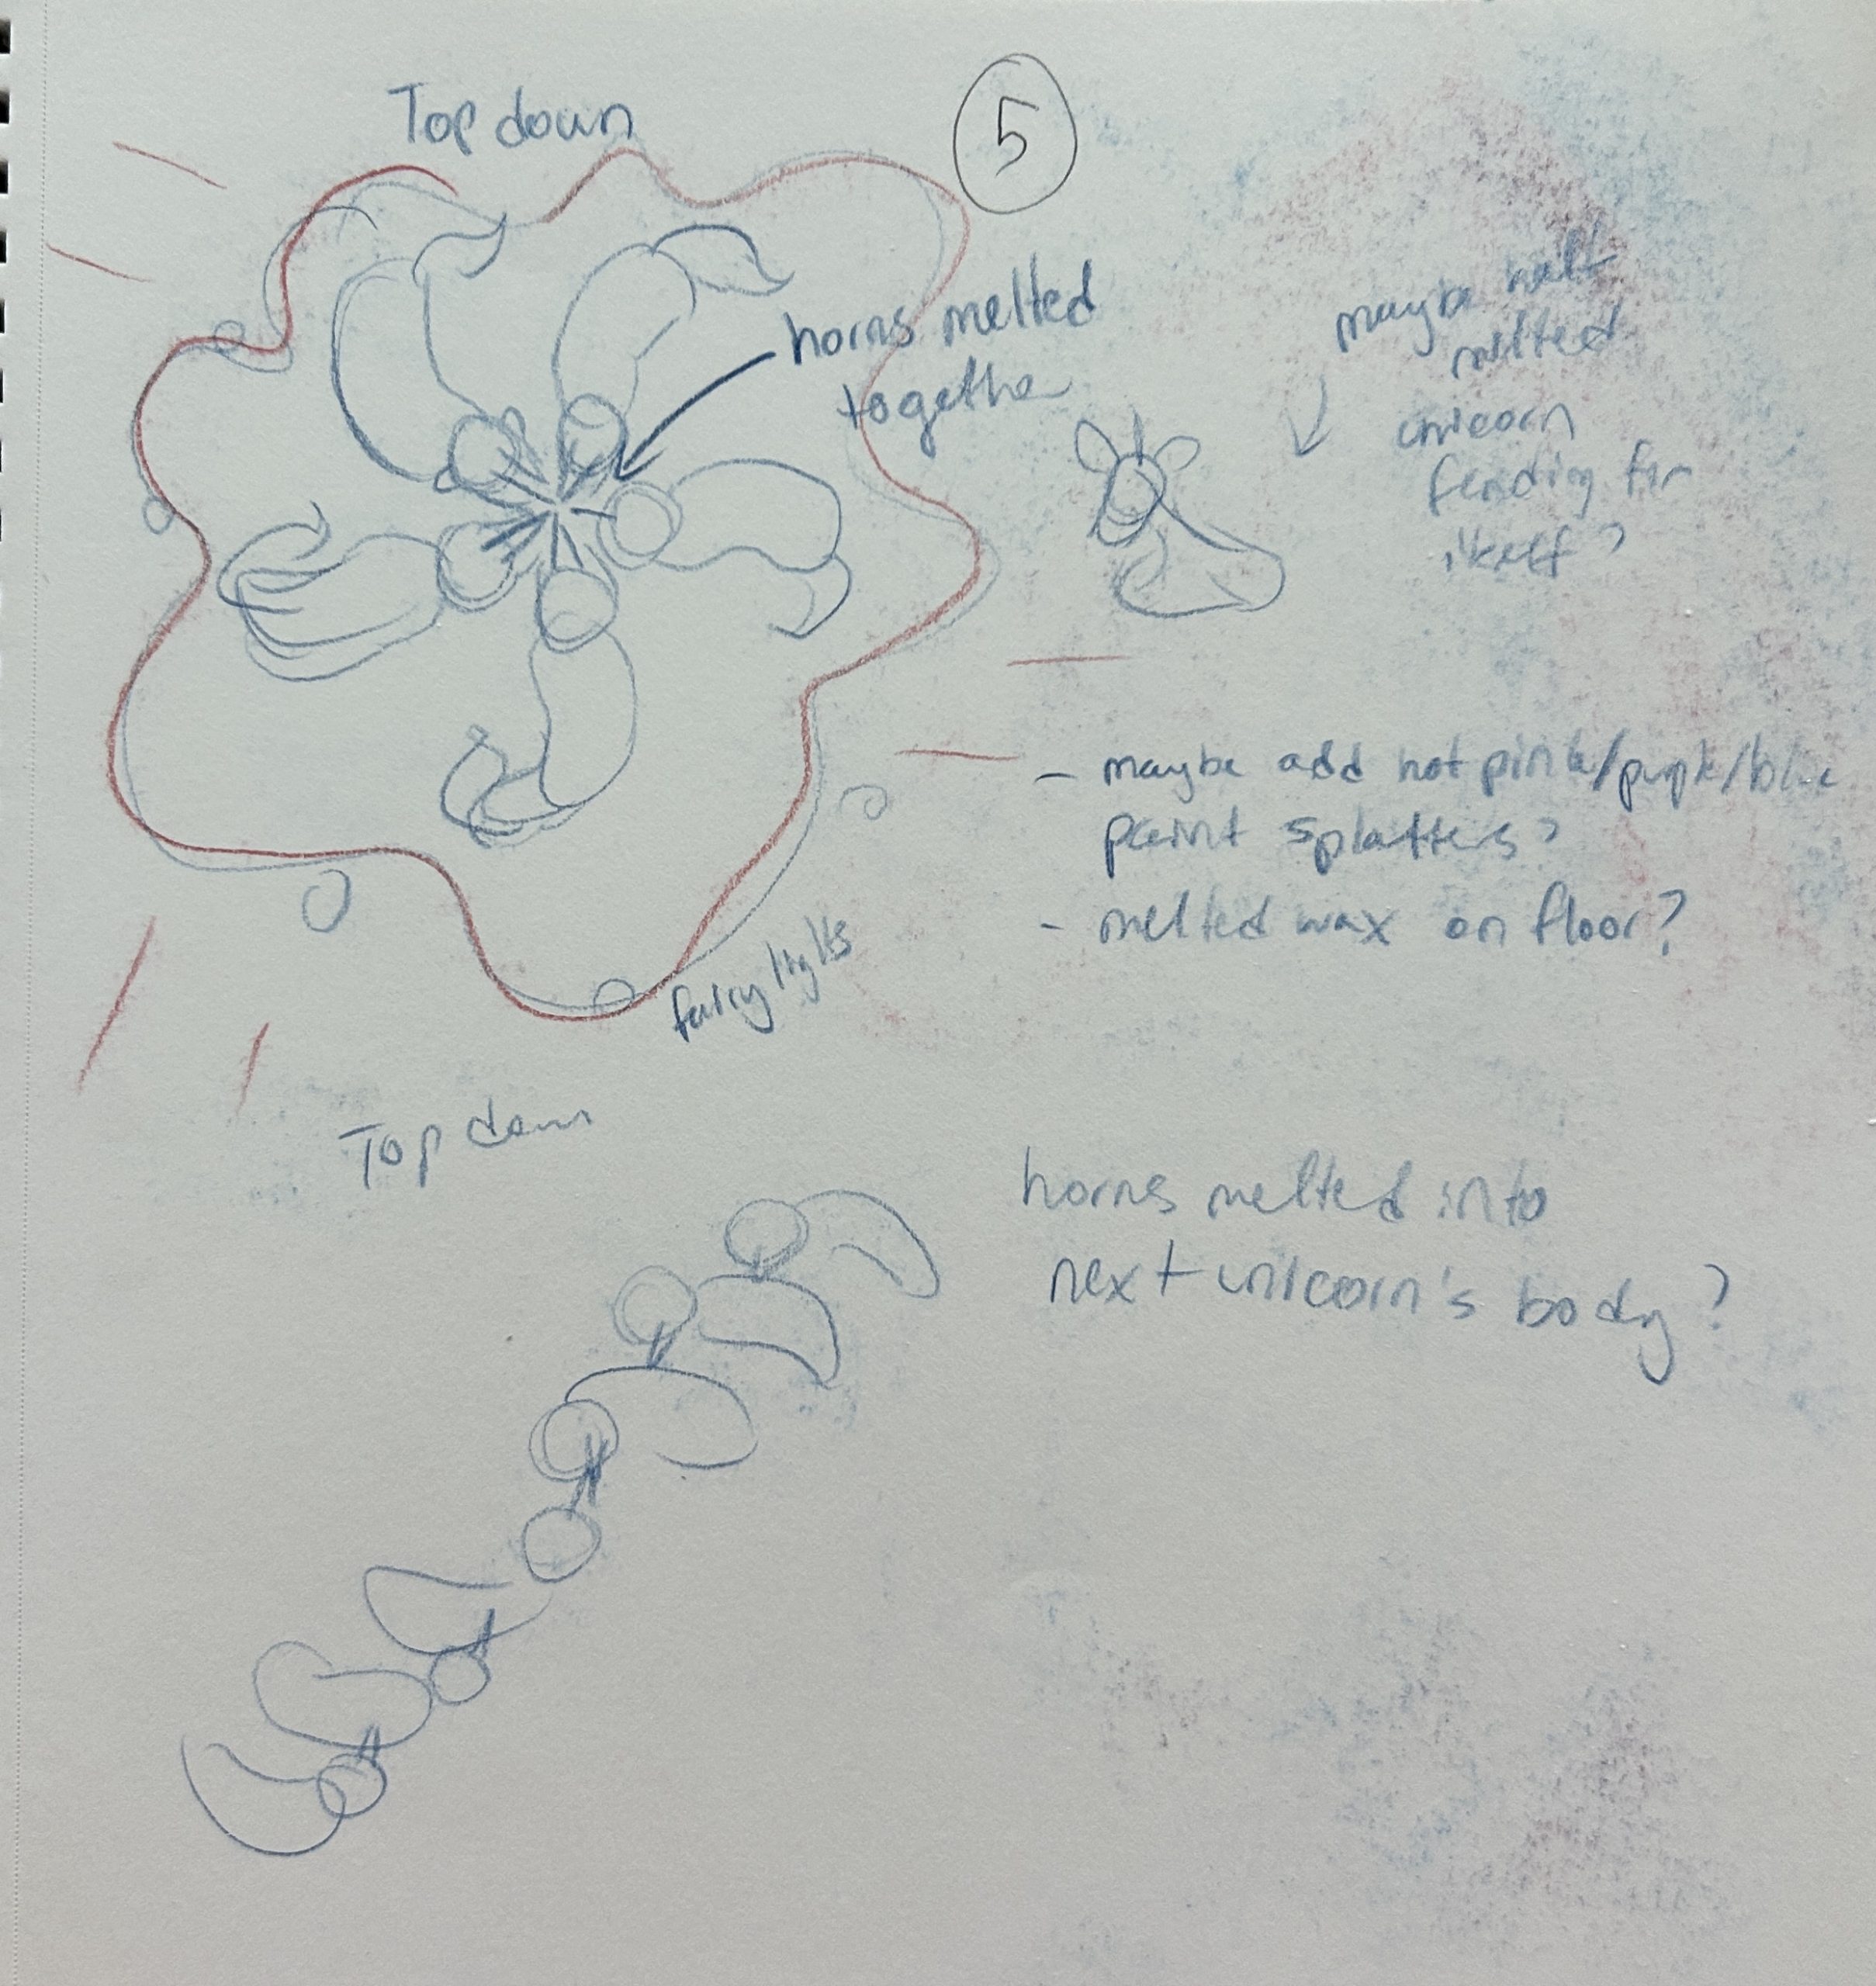 Top down
5
horns melted
together
maybe half
melted
unicorn
fending for
itself?
- maybe add hot pink/purple/blue
paint splatters?
- melted wax on floor?
fairy lights
Top down
horns melted into
next unicorn's body?